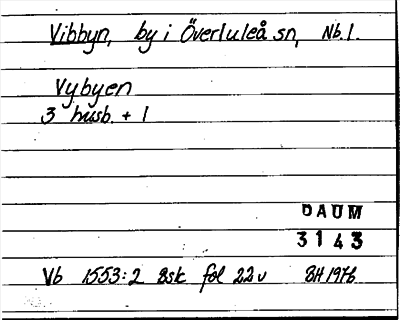 Vibbyn, by i Överluleå sn, Nb. l.
Vybyen
3 husb. + 1
DAUM
3143
Vb 1553:2 Bsk fol 22v BH 1976